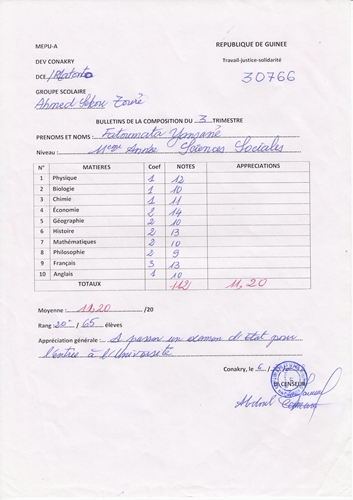 MEPU-A REPUBLIQUE DE GUINEE
DEV CONAKRY Travail-justice-solidarité
DCE/Matoto 30766
GROUPE SCOLAIRE
Ahmed Sékou Touré
BULLETINS DE LA COMPOSITION DU 3 TRIMESTRE
PRENOMS ET NOMS : Fatoumata Yansané
Niveau : 11ème Année Sciences Sociales
N° MATIERES Coef NOTES APPRECIATIONS
1 Physique 1 12
2 Biologie 1 10
3 Chimie 1 11
4 Économie 2 14
5 Géographie 2 10
6 Histoire 2 13
7 Mathématiques 2 10
8 Philosophie 2 9
9 Français 3 13
10 Anglais 1 10
TOTAUX 112 11,20
Moyenne : 11,20 /20
Rang 20e / 65 élèves
Appréciation générale : A passer un examen d'état pour
l'entrée à l'Université
Conakry, le 6
LE CENSEUR
Abdoul